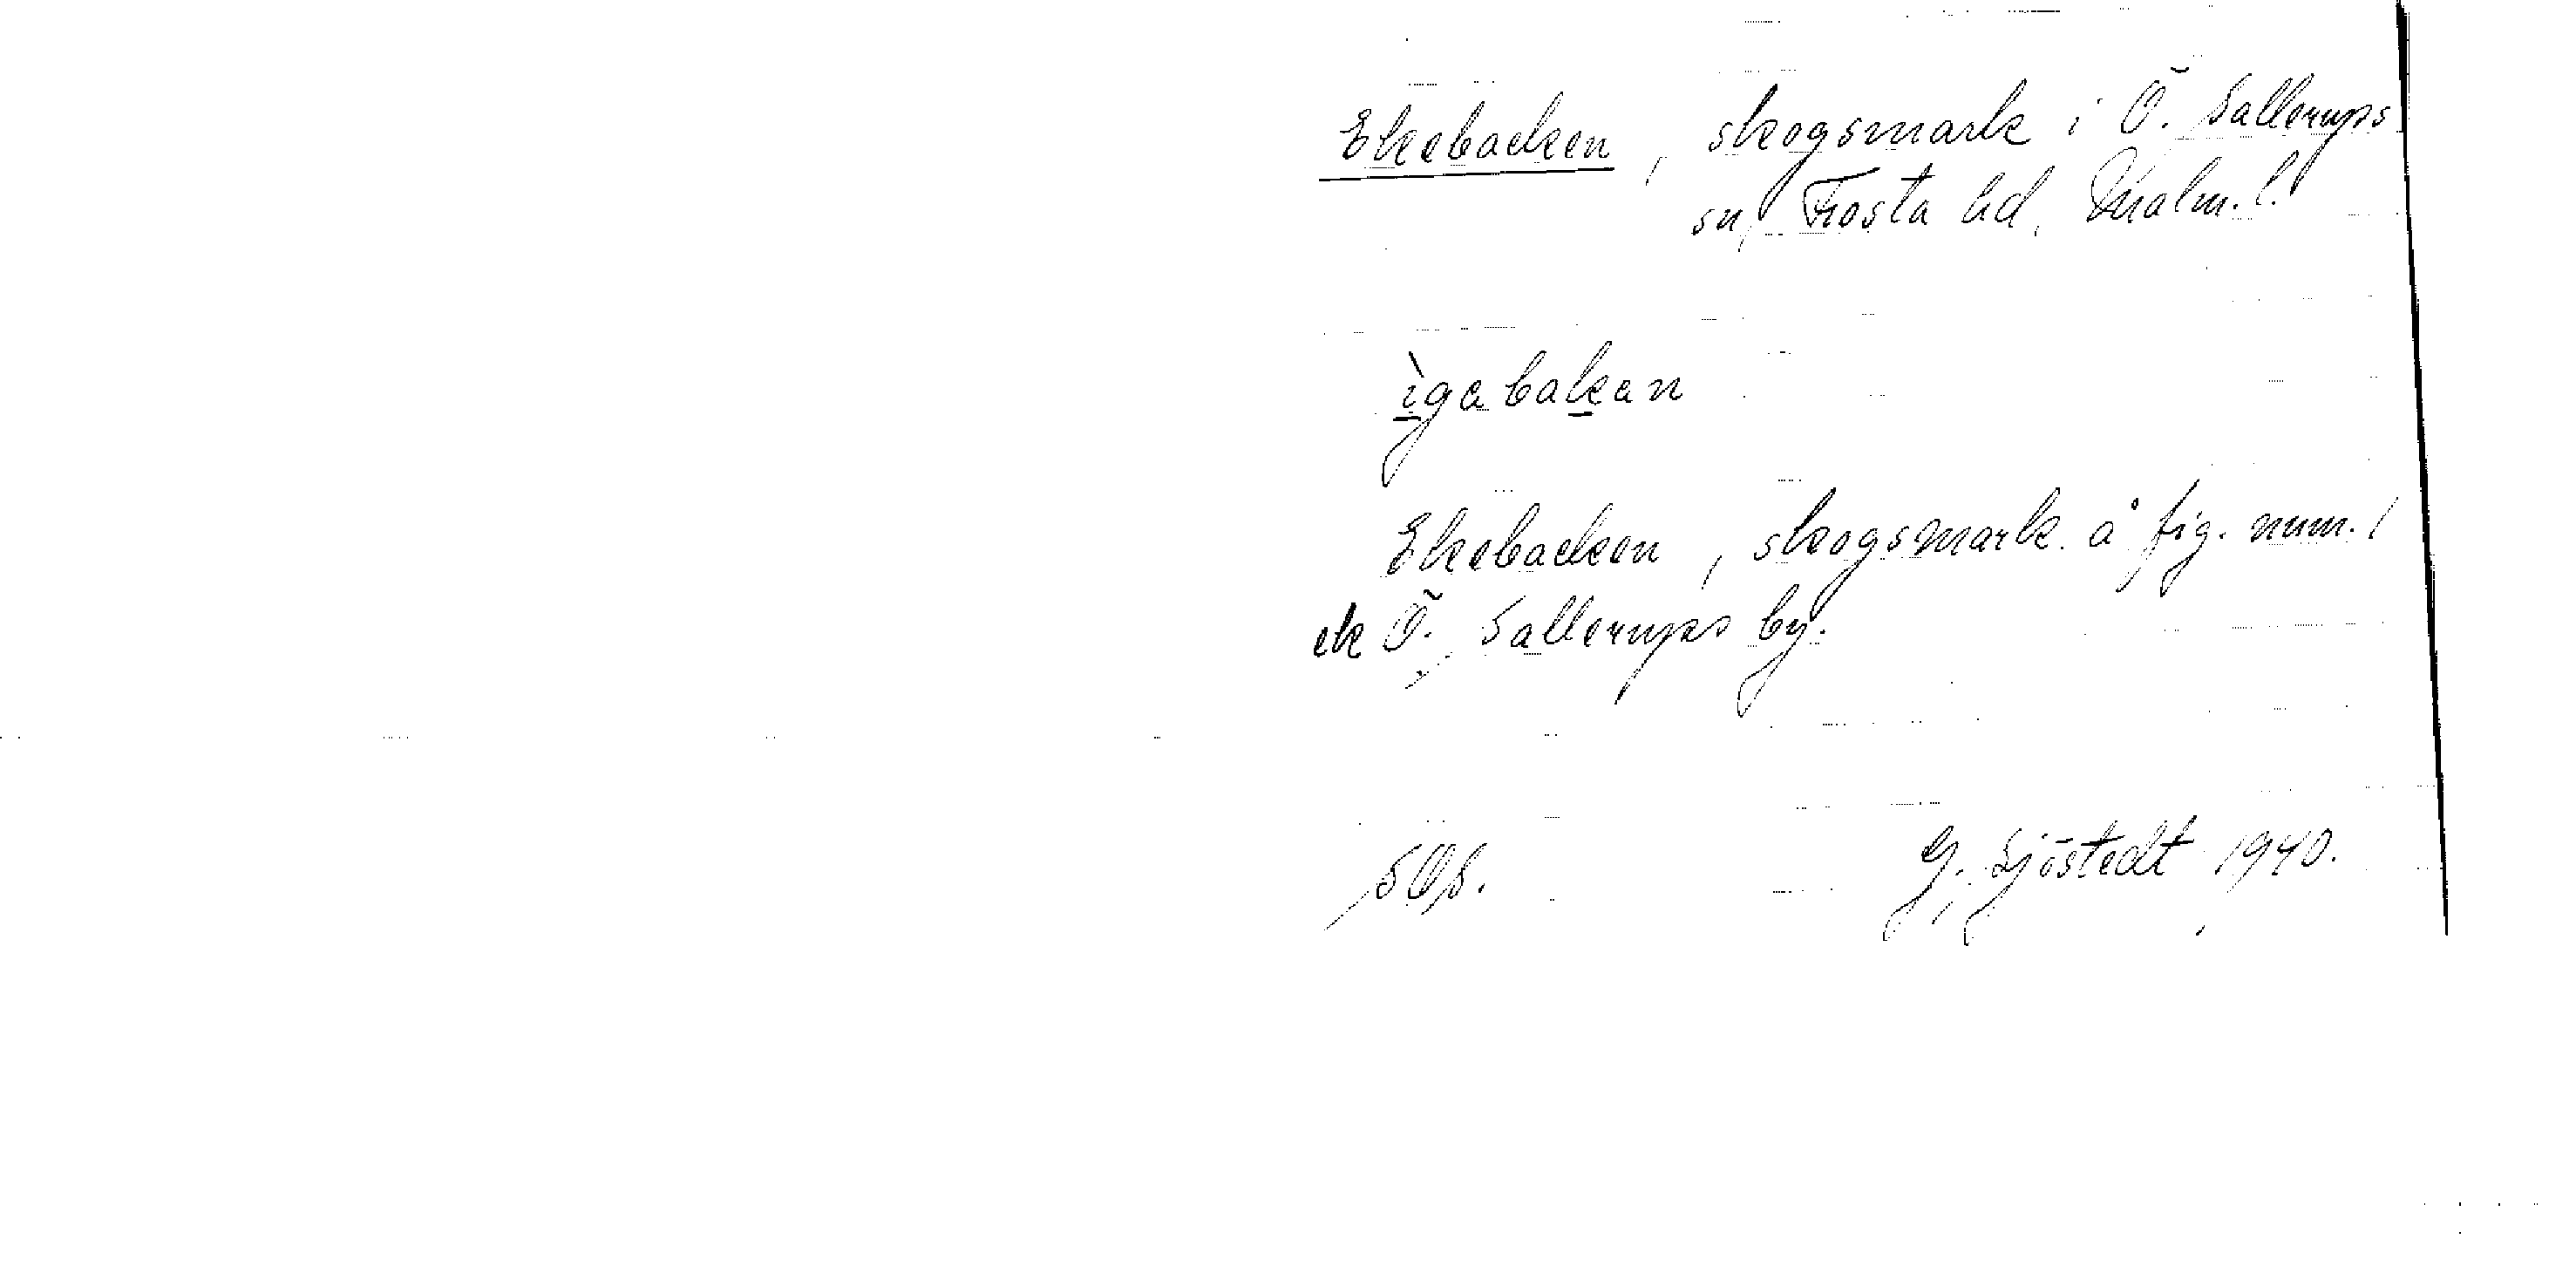 Ekebacken, skogsmark i Ö. Sallerups
sn, Frosta hd, Malm. l.
ìgabakan
Ekebacken, skogsmark å fig. num. 1
ek Ö. Sallerups by.
SOS.
G. Sjöstedt 1940.